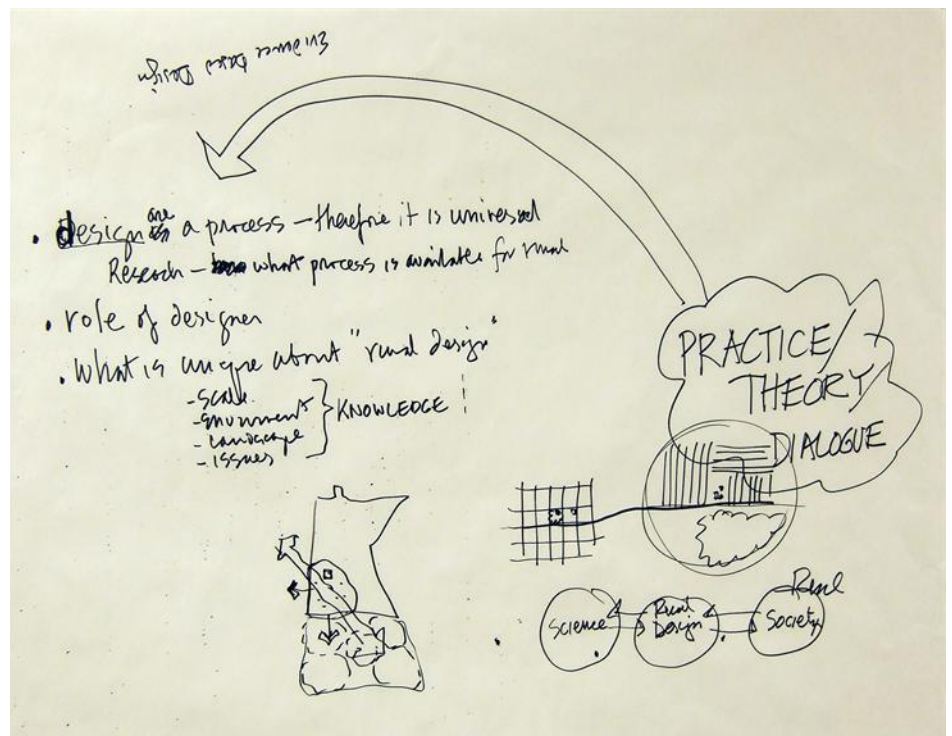 Evidence based Design
• design are a process – therefore it is universal
Research – what process is available for rural
• role of designer
• What is unique about "rural design"
- Scale
- environment
- Landscape
- issues
} KNOWLEDGE !
PRACTICE/
THEORY/
DIALOGUE
Science
Rural
Design
Rural
Society